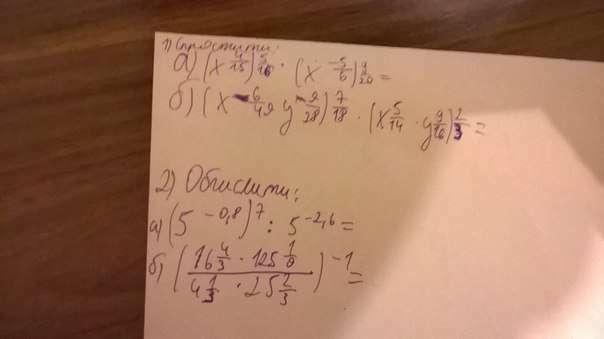 1) Спростити:
а) (x^{4/15})^{5/16} · (x^{-5/6})^{9/20} =
б) (x^{-6/49} y^{-9/28})^{7/18} · (x^{5/14} · y^{9/16})^{2/3} =
2) Обчислити:
а) (5^{-0,8})^7 : 5^{-2,6} =
б) (16^{4/3} · 125^{1/9} / 4^{1/3} · 25^{2/3})^{-1} =